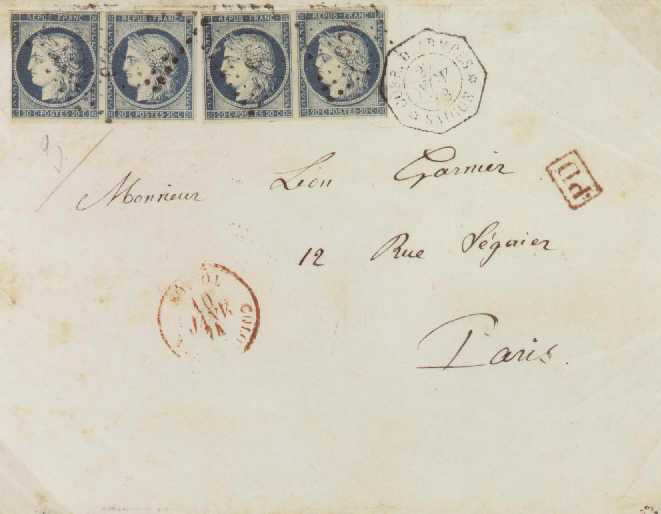 REPUB. FRANC. REPUB. FRANC. REPUB. FRANC. REPUB. FRANC.
20 C. POSTES 20 C. 20 C. POSTES 20 C. 20 C. POSTES 20 C. 20 C. POSTES 20 C.
CORR. D. ARMÉES
SAIGON
Monsieur Léon Garnier
PD
12 Rue Séguier
10
JANV.
Paris.